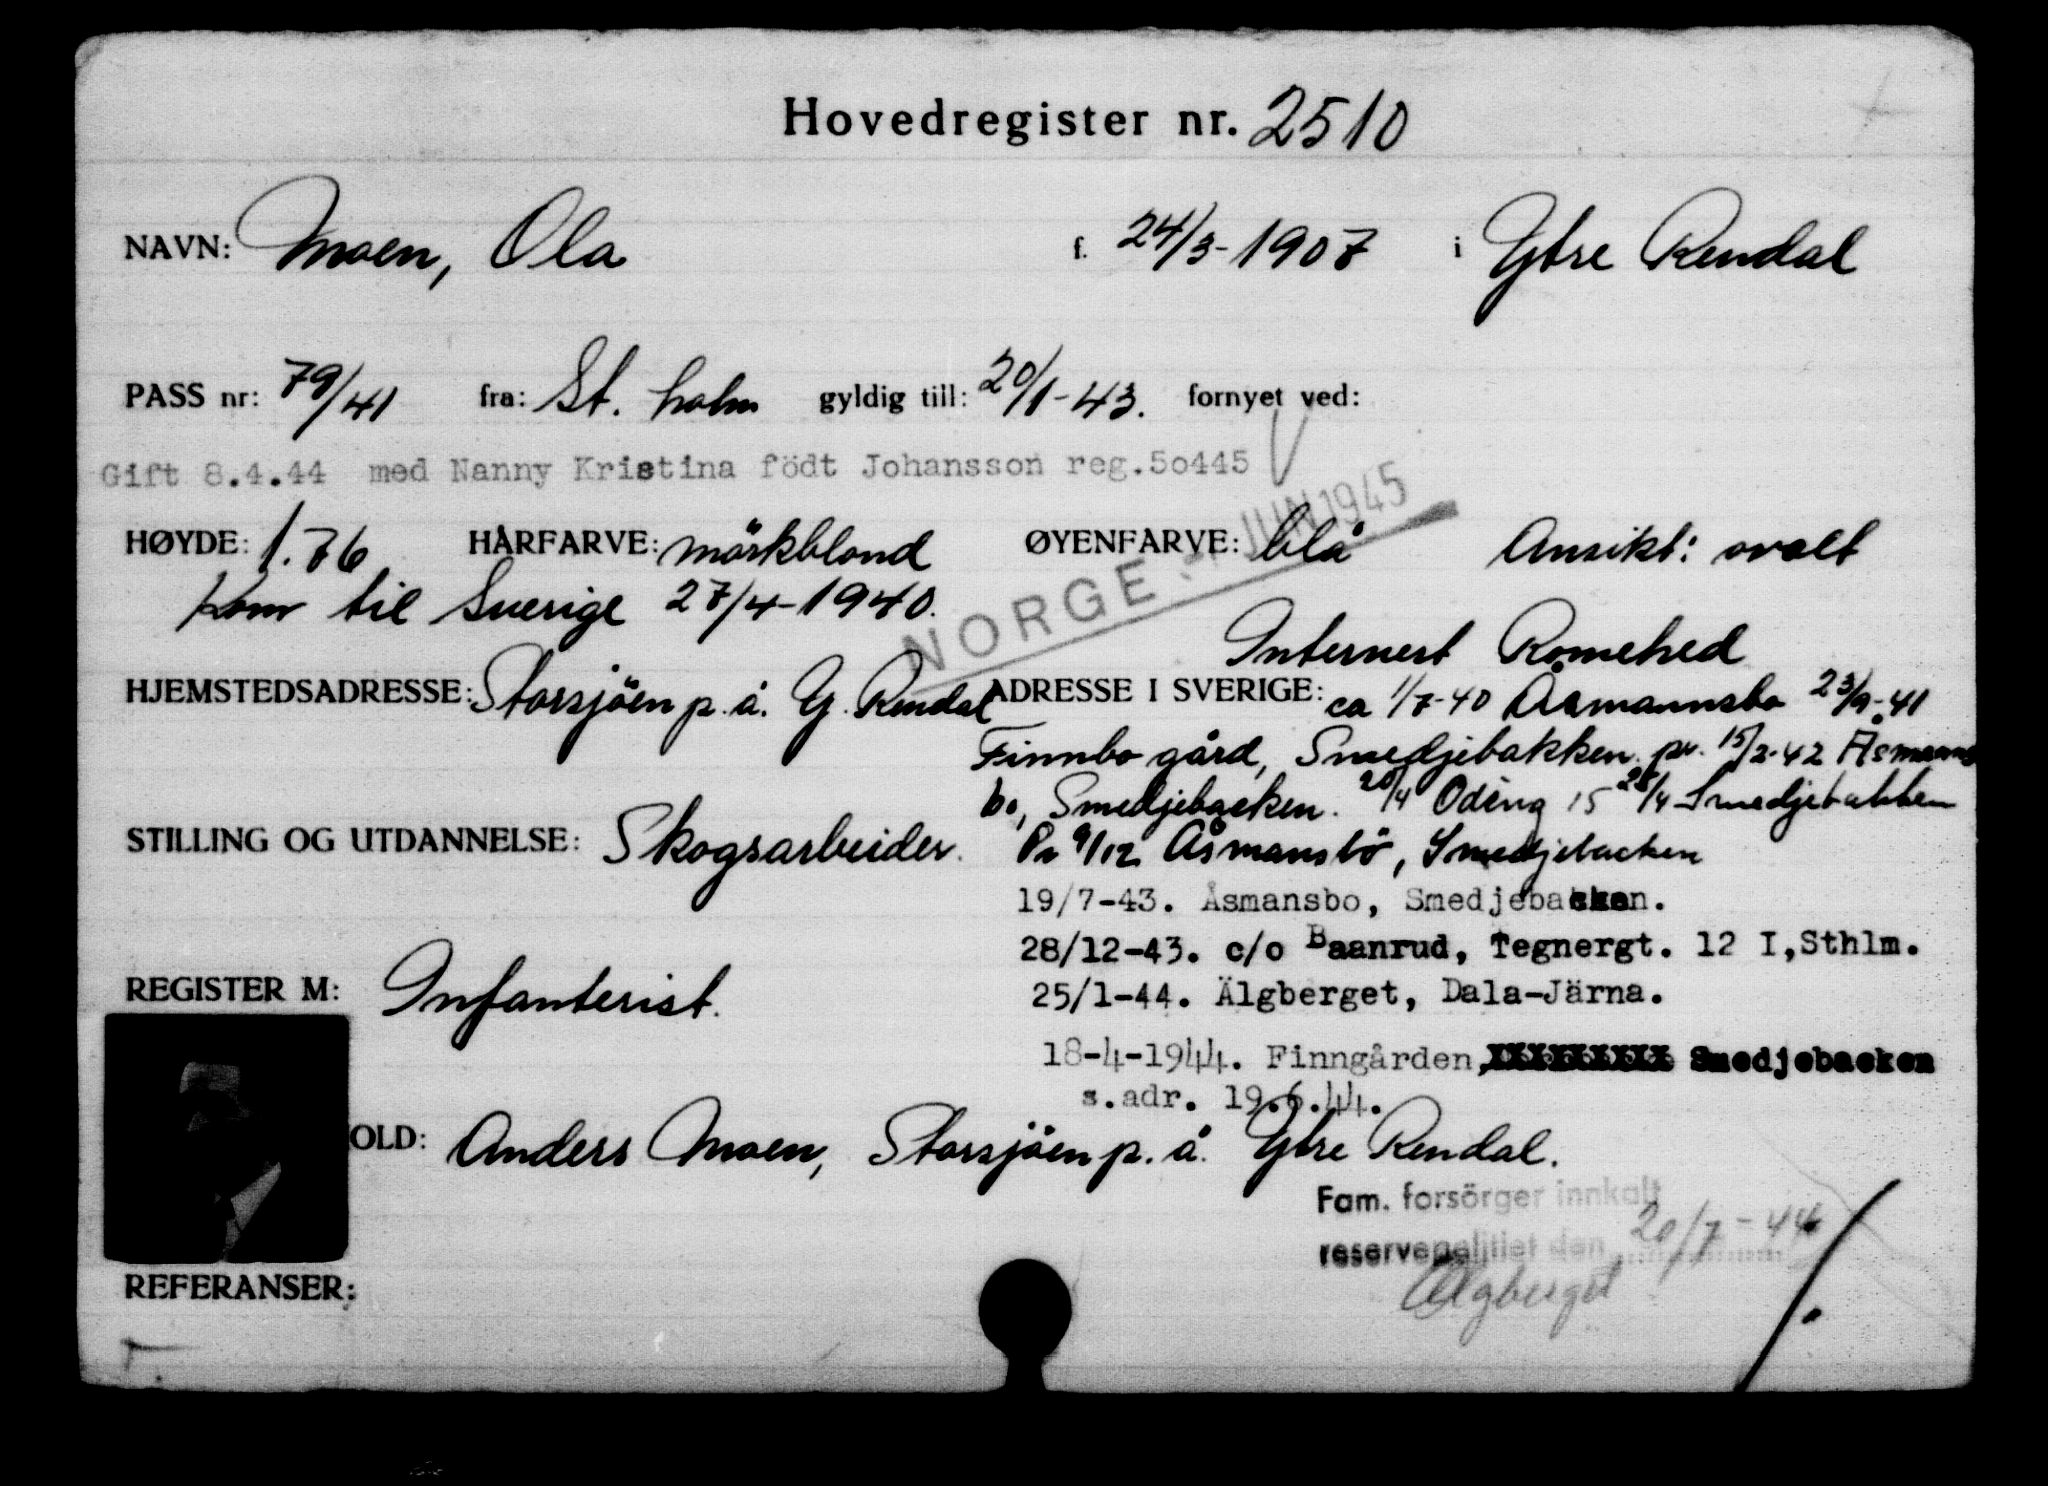 Hovedregister nr. 2510
NAVN: Moen, Ola f. 24/3-1907 i Ytre Rendal
PASS nr: 79/41 fra: St. holm gyldig till: 20/1-43. fornyet ved:
Gift 8.4.44 med Nanny Kristina födt Johansson reg.50445
NORGE - JUN 1945
HØYDE: 1.76 HÅRFARVE: mörkblond ØYENFARVE: blå Ansikt: ovalt
Kom til Sverige 27/4-1940.
Internert Romehed
HJEMSTEDSADRESSE: Storsjöen p. å. Y. Rendal ADRESSE I SVERIGE: ca 1/7-40 Åsmannsbo 23/9-41
Finnbo gård, Smedjebakken. pr. 15/2-42 Åsmanns
bo, Smedjebacken. 20/4 Oding 15 28/4 Smedjebakken
STILLING OG UTDANNELSE: Skogsarbeider. Pr 9/12 Åsmansbö, Smedjebacken
19/7-43. Åsmansbo, Smedjebacken.
28/12-43. c/o Baanrud, Tegnergt. 12 I,Sthlm.
REGISTER M: Infanterist. 25/1-44. Älgberget, Dala-Järna.
18-4-1944. Finngården, Smedjebacken
s.adr. 19.6.44.
OLD: Anders Moen, Storsjöen p. å. Ytre Rendal.
Fam. forsörger innkalt
reservepolitiet den 20/7-44
Älgberget
REFERANSER: